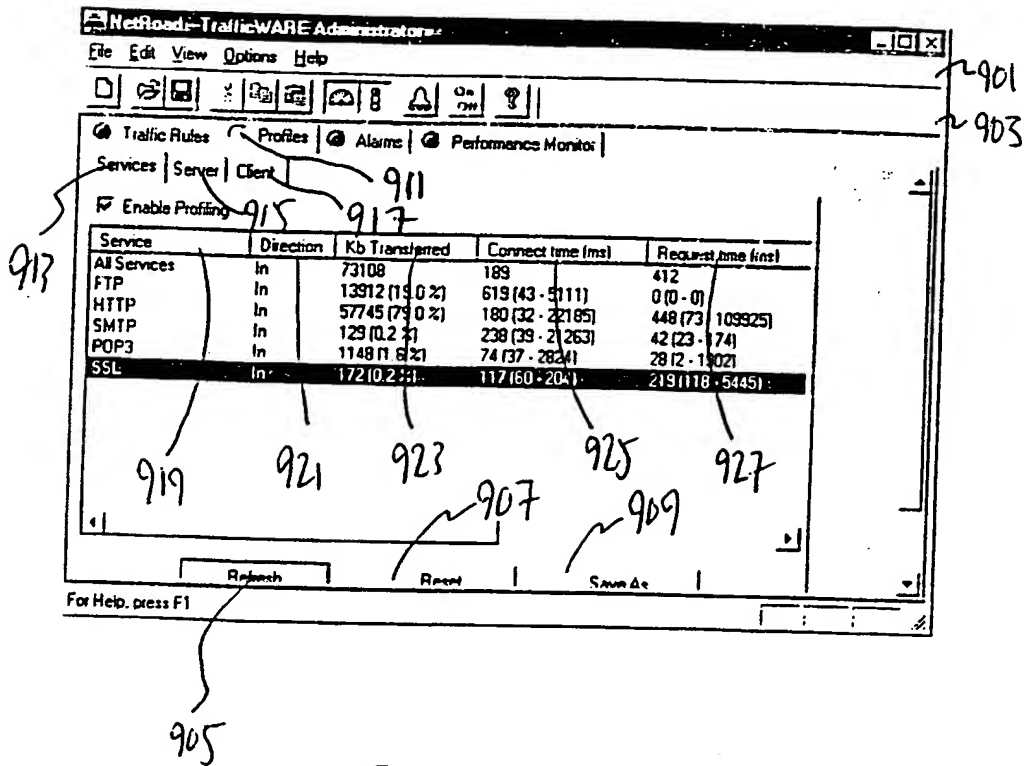 NetRoads-TrafficWARE Administrator
File Edit View Options Help
901
On Off
903
Traffic Rules Profiles Alarms Performance Monitor
Services Server Client
911
Enable Profiling
915 917
913
Service Direction Kb Transferred Connect time (ms) Request time (ms)
All Services In 73108 189 412
FTP In 13912 (19.0 %) 619 (43 - 5111) 0 (0 - 0)
HTTP In 57745 (79.0 %) 180 (32 - 22185) 448 (73 - 109925)
SMTP In 129 (0.2 %) 238 (39 - 21263) 42 (23 - 174)
POP3 In 1148 (1.6 %) 74 (37 - 2824) 28 (2 - 1302)
SSL In 172 (0.2 %) 117 (60 - 204) 219 (118 - 5445)
919 921 923 925 927
907 909
Refresh Reset Save As
For Help, press F1
905